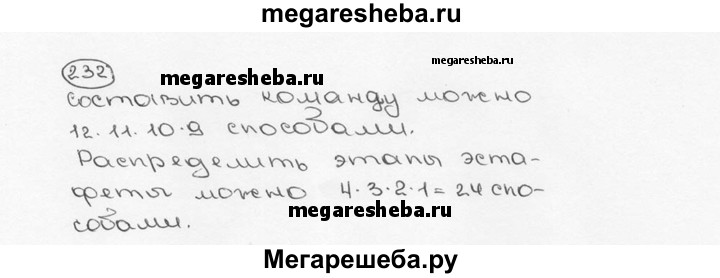 megaresheba.ru
232
megaresheba.ru
megaresheba.ru
составить команду можно
12·11·10·9 способами.
Распределить этапы эста-
феты можно 4·3·2·1=24 спо-
megaresheba.ru
собами.
Мегарешеба.ру